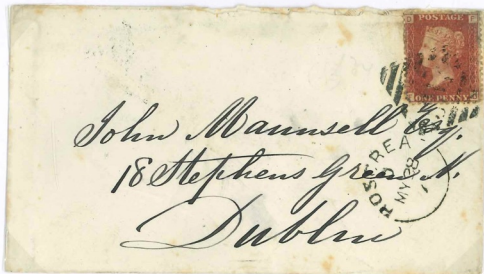 POSTAGE
ONE PENNY
John Maunsell Esq.
18 Stephens Green N.
Dublin
ROSCREA
MY 28